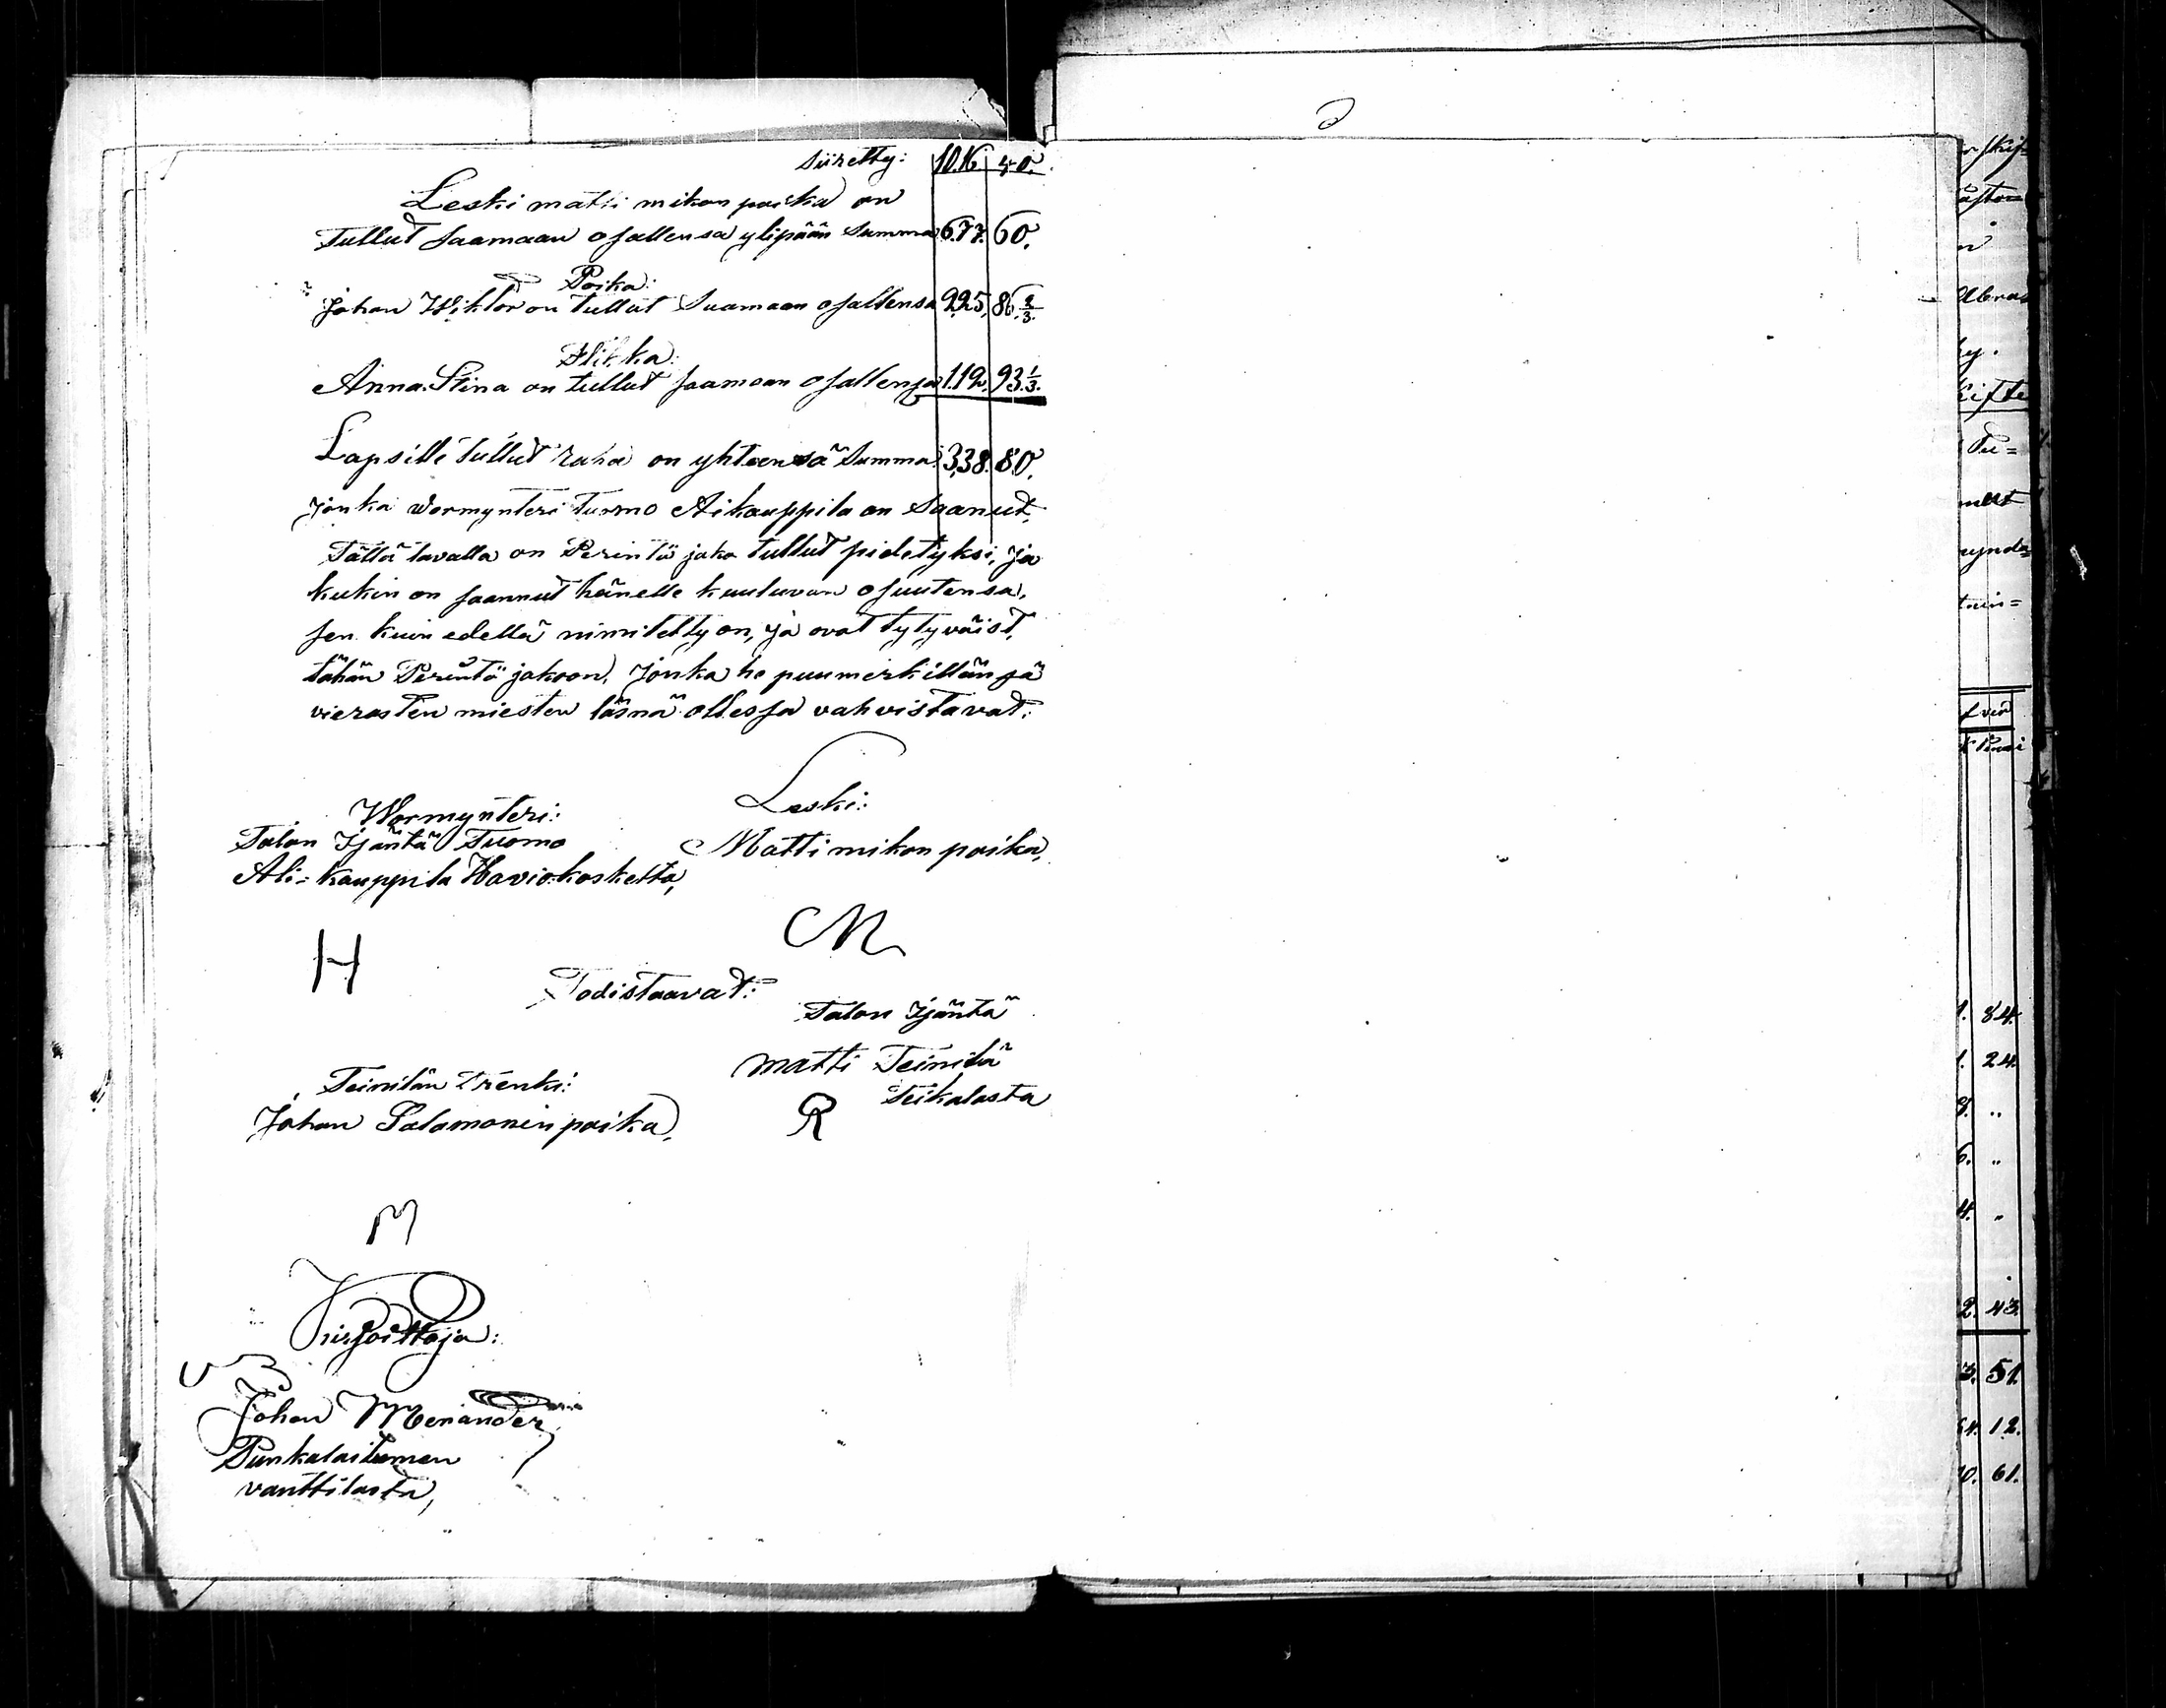 Siiretty: 10.16. 40.
Leski matti mikon poika on
Tullut saamaan osallensa ylipään Summa 677. 60.
Poika:
Johan Wiktor on Tullut Saamaan osallensa 225. 86 2/3.
Flikka:
Anna Stina on tullut saamaan osallensa 112. 93 1/3.
Lapsille tullut raha on yhteensä Summa 338. 80.
Jonka vormynteri Tuomo Alikauppila on Saanut,
Tällä tavalla on Perintö jako tullut pidetyksi, ja
kukin on saannut hänelle kuuluvan osuutensa,
sen kuin edellä nimitetty on, ja ovat tytyväist,
tähän Perintö jakoon, Jonka he puumerkillänsä
vierasten miesten läsnä ollessa vahvistavat:
Wormynteri: Leski:
Talon Isäntä Tuomo Matti mikon poika,
Ali-Kauppila Haviokoskelta,
H M
Todistaavat:
Talon Isäntä
matti Teinilä
Teikalasta
R
Teinilän Trenki:
Johan Salamonin poika,
M
Kirjoittaja:
Johan Menander,
Punkalaitumen
vanttilasta,
kifte
84.
24.
8. ..
6. ..
4. ..
2. 43.
3. 51.
12.
0. 61.